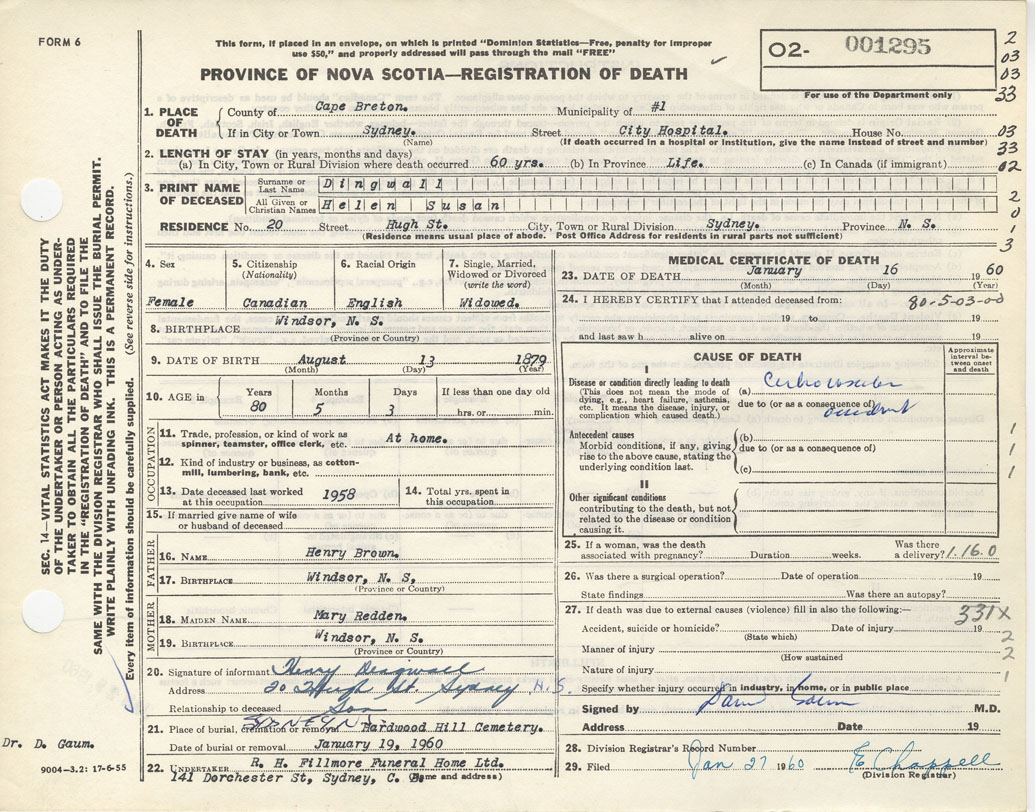 FORM 6
This form, if placed in an envelope, on which is printed "Dominion Statistics—Free, penalty for improper
use $50," and properly addressed will pass through the mail "FREE"
PROVINCE OF NOVA SCOTIA—REGISTRATION OF DEATH
O2- 001295
For use of the Department only
2
03
03
33
1. PLACE OF DEATH
County of Cape Breton. Municipality of #1
If in City or Town Sydney. Street City Hospital. House No. 03
(Name) (If death occurred in a hospital or institution, give the name instead of street and number)
33
2. LENGTH OF STAY (in years, months and days)
(a) In City, Town or Rural Division where death occurred 60 yrs. (b) In Province Life. (c) In Canada (if immigrant) 02
3. PRINT NAME OF DECEASED
Surname or Last Name Dingwall
All Given or Christian Names Helen Susan
2
0
RESIDENCE No. 20 Street Hugh St. City, Town or Rural Division Sydney. Province N. S. 1
(Residence means usual place of abode. Post Office Address for residents in rural parts not sufficient)
3
4. Sex
Female
5. Citizenship
(Nationality)
Canadian
6. Racial Origin
English
7. Single, Married,
Widowed or Divorced
(write the word)
Widowed.
8. BIRTHPLACE Windsor, N. S.
(Province or Country)
9. DATE OF BIRTH August 13 1879
(Month) (Day) (Year)
10. AGE in
Years Months Days If less than one day old
80 5 3 hrs. or min.
OCCUPATION
11. Trade, profession, or kind of work as
spinner, teamster, office clerk, etc. At home.
12. Kind of industry or business, as cotton-
mill, lumbering, bank, etc.
13. Date deceased last worked
at this occupation 1958
14. Total yrs. spent in
this occupation
15. If married give name of wife
or husband of deceased
FATHER
16. NAME Henry Brown.
17. BIRTHPLACE Windsor, N. S,
(Province or Country)
MOTHER
18. MAIDEN NAME Mary Redden.
19. BIRTHPLACE Windsor, N. S.
(Province or Country)
20. Signature of informant Henry Dingwall
Address 20 Hugh St. Sydney N.S.
Relationship to deceased Son
21. Place of burial, cremation or removal SYDNEY N.S. Hardwood Hill Cemetery.
Date of burial or removal January 19, 1960
22. UNDERTAKER R. H. Fillmore Funeral Home Ltd.
141 Dorchester St, Sydney, C. B.
(Name and address)
MEDICAL CERTIFICATE OF DEATH
23. DATE OF DEATH January 16 1960
(Month) (Day) (Year)
24. I HEREBY CERTIFY that I attended deceased from: 80-5-03-00
19 to 19
and last saw h alive on 19
CAUSE OF DEATH
Approximate
interval be-
tween onset
and death
I
Disease or condition directly leading to death
(This does not mean the mode of
dying, e.g., heart failure, asthenia,
etc. It means the disease, injury, or
complication which caused death.)
(a) Cerebrovascular
due to (or as a consequence of)
accident
Antecedent causes
Morbid conditions, if any, giving
rise to the above cause, stating the
underlying condition last.
(b)
due to (or as a consequence of)
(c)
1
1
1
II
Other significant conditions
contributing to the death, but not
related to the disease or condition
causing it.
25. If a woman, was the death
associated with pregnancy? Duration weeks. Was there
a delivery? 1.16.0
26. Was there a surgical operation? Date of operation 19
State findings Was there an autopsy?
27. If death was due to external causes (violence) fill in also the following:— 331X
Accident, suicide or homicide? Date of injury 19
(State which)
2
Manner of injury 2
(How sustained
Nature of injury 1
Specify whether injury occurred in industry, in home, or in public place
Signed by Dave Gaum M.D.
Address Date 19
28. Division Registrar's Record Number
29. Filed Jan 27 1960 E Chappell
(Division Registrar)
SEC. 14—VITAL STATISTICS ACT MAKES IT THE DUTY
OF THE UNDERTAKER OR PERSON ACTING AS UNDER-
TAKER TO OBTAIN ALL THE PARTICULARS REQUIRED
IN THE "REGISTRATION OF DEATH" AND TO FILE THE
SAME WITH THE DIVISION REGISTRAR WHO SHALL ISSUE THE BURIAL PERMIT.
WRITE PLAINLY WITH UNFADING INK. THIS IS A PERMANENT RECORD.
Every item of information should be carefully supplied. (See reverse side for instructions.)
Dr. D. Gaum.
9004-3.2: 17-6-55